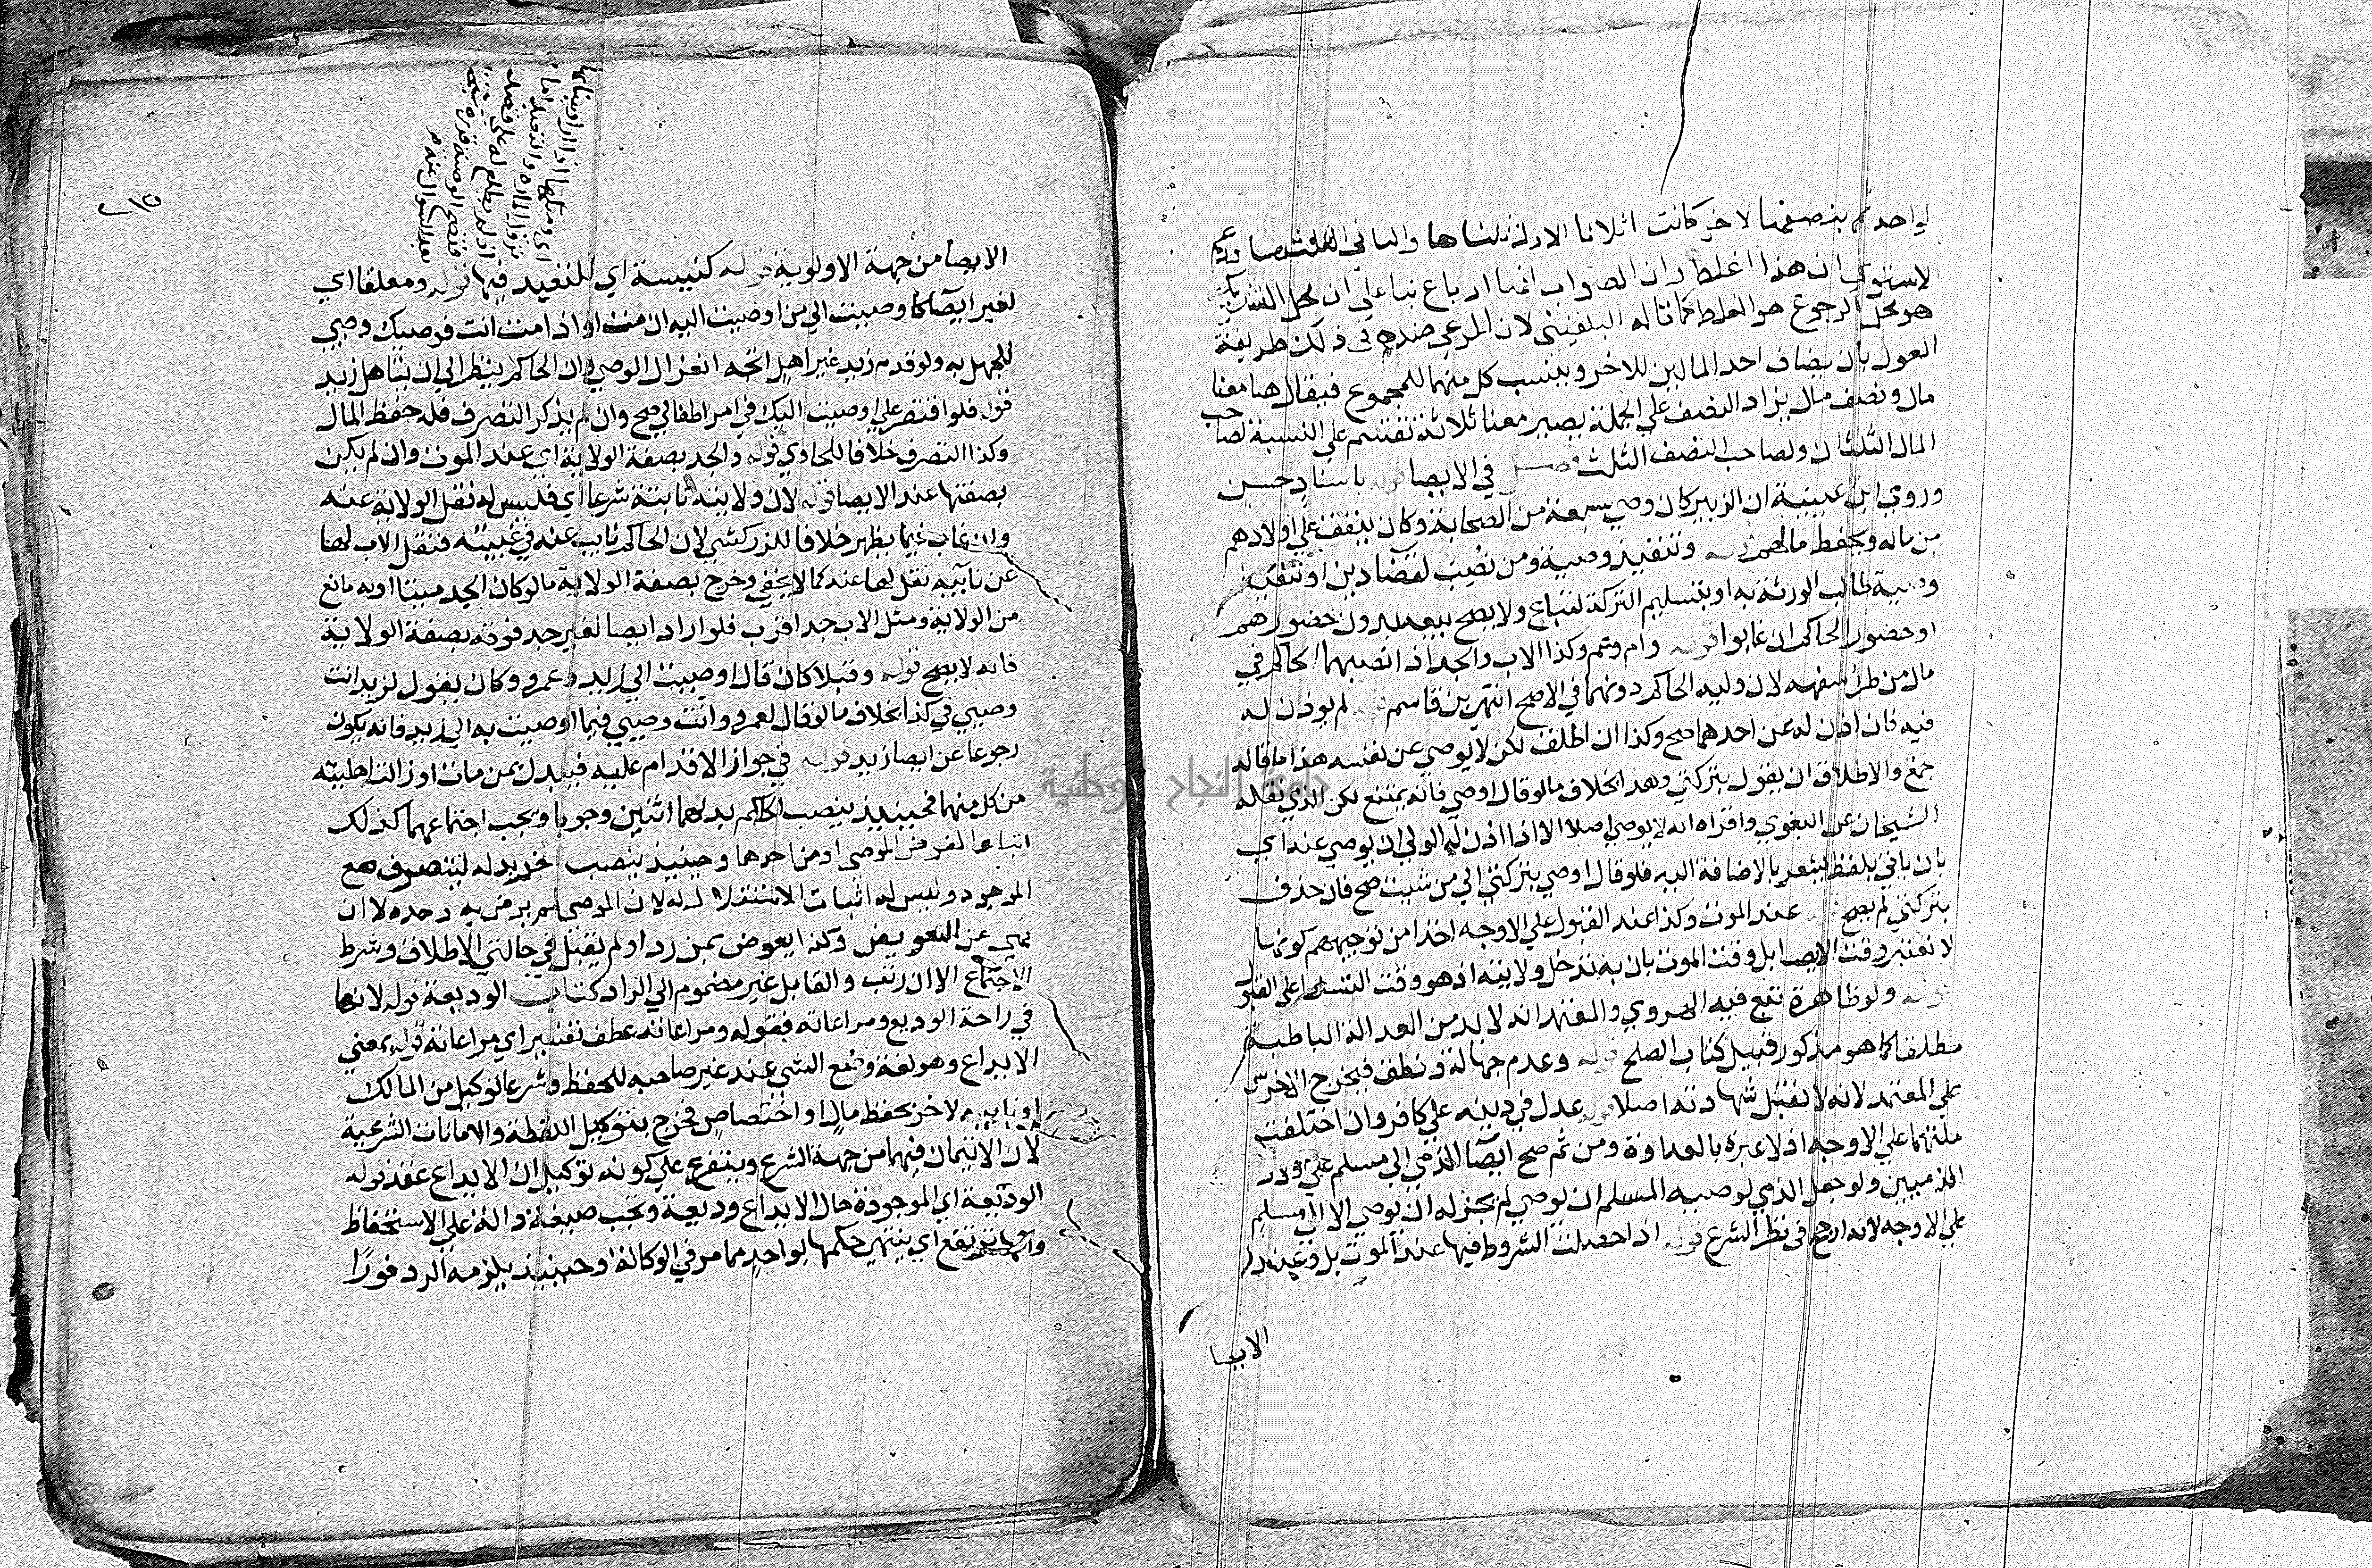 لواحد ثم بنصفها لاخر كانت اثلاثا الاول ثلثاها والثاني الثلث وما زعمه
الاسنوي ان هذا غلط وان الصواب انها ارباع بنا على ان محل التشريك
هو محل الرجوع هو الغلط كما قاله البلقيني لان المرعي عندهم في ذلك طريقة
العول بان يضاف احد المالين للاخر وينسب كل منهما للمجموع فيقال هنا معنا
مال ونصف مال يزاد النصف على الجملة يصير معنا ثلاثة تقتسم على النسبة لصاحب
المال الثلثان ولصاحب النصف الثلث فصل في الايصا قوله باسناد حسن
وروي ابن عيينة ان الزبير كان وصي سبعة من الصحابة وكان ينفق على اولادهم
من ماله ويحفظ مالهم قوله وتنفيذ وصية ومن نصب لقضا دين او تنفيذ
وصية طالب الورثة به او بتسليم التركة لتباع ولا يصح بيعه بدون حضورهم
او حضور الحاكم ان غابوا قوله وام وعم وكذا الاب والجد اذ انصبهما الحاكم في
مال من طرأ سفهه لان وليه الحاكم دونهما في الاصح انتهى بن قاسم قوله لم يوذن له
فيه فان اذن له عن احدهما صح وكذا ان اطلق لكن لا يوصي عن نفسه هذا ما قاله
جمع والاطلاق ان يقول بتركتي وهذا بخلاف ما لو قال اوصي فانه يمتنع لكن الذي نقله
الشيخان عن البغوي واقراه انه لا يوصي اصلا الا اذا اذن له الولي ان يوصي عنه اي
بان ياتي بلفظ يشعر بالاضافة اليه فلو قال اوصي بتركتي الى من شيت صح فان حذف
بتركتي لم يصح قوله عند الموت وكذا عند القبول على الاوجه اخذا من توجيههم كونها
لا تعتبر وقت الايصا بل وقت الموت بان به تدخل ولايته اذ هو وقت التسلط على القبول
قوله ولو ظاهرة تبع فيه الهروي والمعتمد انه لا بد من العدالة الباطنة
مطلقا كما هو مذكور قبيل كتاب الصلح قوله وعدم جهالة ونطق فيخرج الاخرس
على المعتمد لانه لا تقبل شهادته اصلا قوله عدل في دينه على كافر وان اختلفت
ملتهما على الاوجه اذ لا عبرة بالعداوة ومن ثم صح ايصا الذمي الى مسلم على اولاد
الذميين ولو جعل الذمي لوصيه المسلم ان يوصي لم يجز له ان يوصي الا الى مسلم
على الاوجه لانه ارجح في نظر الشرع قوله اذا حصلت الشروط فيها عند الموت بل وعند
الايصا
اي ومثلها اذا اراد بنايها
نزول المارة والتعبد اما
بعد السوال عنه م
الايصا من جهة الاولوية قوله كنيسة اي للتعبد فيها قوله ومعلقا اي
لغير ايضا كاوصيت الى من اوصيت اليه ان مت او اذا مت انت فوصيك وصيي
للجهل به ولو قدم زيد غير اهل اتجه انعزال الوصي وان الحاكم ينظر الى ان يتاهل زيد
قوله فلو اقتصر على اوصيت اليك في امر اطفالي صح وان لم يذكر التصرف فله حفظ المال
وكذا التصرف خلافا للحاوي قوله والجد بصفة الولاية اي عند الموت وان لم يكن
بصفتها عند الايصا قوله لان ولايته ثابتة شرعا اي فليس له نقل الولاية عنه
وان غاب فيما يظهر خلافا للزركشي لان الحاكم نايب عنه في غيبته فنقل الاب لها
عن نايبه نقل لها عنه كما لا يخفى وخرج بصفة الولاية ما لو كان الجد ميتا او به مانع
من الولاية ومثل الاب جد اقرب فلو اراد ايصا لغير جد فوقه بصفة الولاية
فانه لا يصح قوله وقبلا كان قال اوصيت الى زيد وعمرو وكان يقول لزيد انت
وصيي في كذا بخلاف ما لو قال لعمرو وانت وصيي فيما اوصيت به الى زيد فانه يكون
رجوعا عن ايصا زيد قوله في جواز الاقدام عليه فيبدل عمن مات او زالت اهليته
من كل منهما فحينيذ ينصب الحاكم بدلهما اثنين وجوبا ويجب اجتماعهما كذلك
اتباعا لغرض الموصي او من احدها وحينيذ ينصب اخر بدله ليتصرف مع
الموجود وليس له اثبات الاستقلال له لان الموصي لم يرض به وحده لا ان
نهى عن التعويض وكذا يعوض عمن رد او لم يقبل في حالتي الاطلاق وشرط
الاجتماع الا ان رتب والقابل غير مضموم الى الراد كتاب الوديعة قوله لانها
في راحة الوديع ومراعاته فقوله ومراعاته عطف تفسير اي مراعاته قوله بمعنى
الايداع وهو لغة وضع الشي عند غير صاحبه للحفظ وشرعا توكيل من المالك
او نايبه لاخر بحفظ مال او اختصاص فخرج بتوكيل اللقطة والامانات الشرعية
لان الايتمان فيهما من جهة الشرع ويتفرع على كونه توكيلا ان الايداع عقد قوله
الوديعة اي الموجودة حال الايداع وديعة وتجب صيغة دالة على الاستحفاظ
وانها ترتفع اي ينتهي حكمها لواحد مما مر في الوكالة وحينيذ يلزمه الرد فورا
جامعة النجاح الوطنية